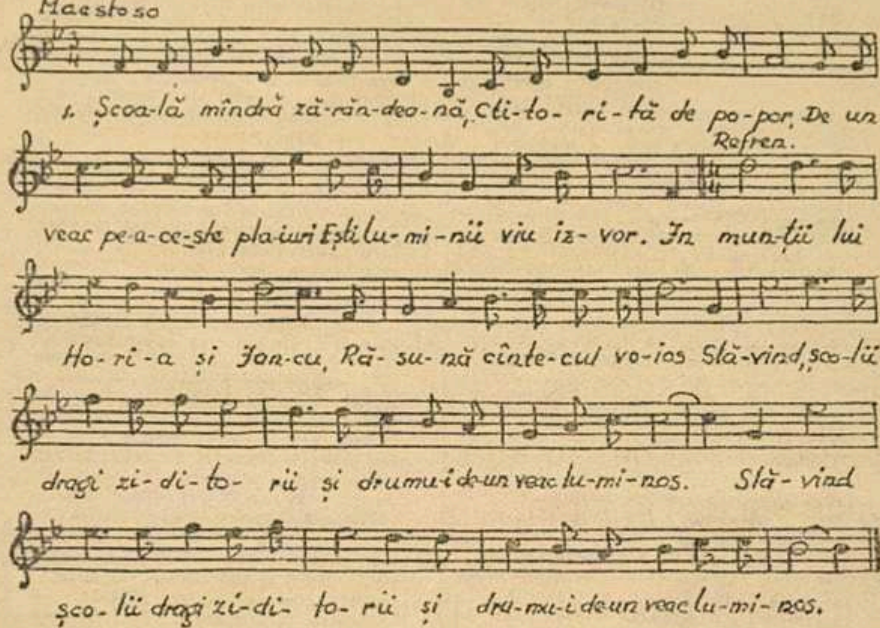 Maestoso
1. Şcoa-lă mîndră ză-răn-dea-nă, Cti-to- ri-tă de po-por, De un
Refren.
veac pe-a-ce-ste pla-iuri Eşti lu-mi-nii viu iz-vor. In mun-ţii lui
Ho-ri-a şi Ian-cu, Ră-su-nă cînte-cul vo-ios Slă-vind, şco-lii
dragi zi-di-to- rii şi drumu-i de-un veac lu-mi-nos. Slă-vind
şco-lii dragi zi-di- to-rii şi dru-mu-i de un veac lu-mi-nos.